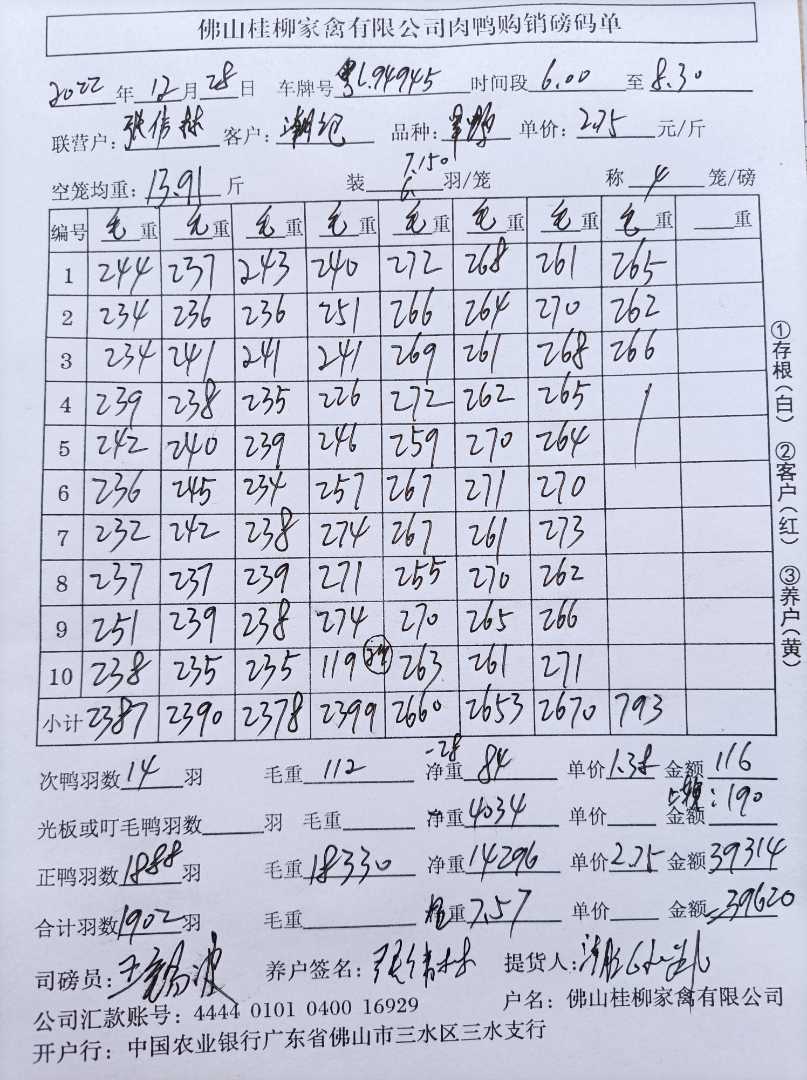 佛山桂柳家禽有限公司肉鸭购销磅码单
2022年12月28日 车牌号粤L94945 时间段6.00至8.30
联营户:张信林 客户: 品种: 单价:2.75元/斤
空笼均重:13.91斤 装7.150 6羽/笼 称4笼/磅
编号 毛重 毛重 毛重 毛重 毛重 毛重 毛重 毛重 重
1 244 237 243 240 272 268 261 265
2 234 236 236 251 266 264 270 262
3 234 241 241 241 269 261 268 266
4 239 238 235 226 272 262 265
5 242 240 239 246 259 270 264
6 236 245 234 257 267 271 270
7 232 242 238 274 267 261 273
8 237 237 239 271 255 270 262
9 251 239 238 274 270 265 266
10 238 235 235 119 263 261 271
小计 2387 2390 2378 2399 2660 2653 2670 793
次鸭羽数14羽 毛重112 净重-28 84 单价1.38 金额116
光板或叮毛鸭羽数 羽 毛重 净重4034 单价 金额:190
正鸭羽数1888羽 毛重18330 净重14296 单价2.75 金额39314
合计羽数1902羽 毛重 重7.57 单价 金额39620
司磅员: 养户签名:张信林 提货人:
公司汇款账号:4444 0101 0400 16929 户名:佛山桂柳家禽有限公司
开户行:中国农业银行广东省佛山市三水区三水支行
①存根(白) ②客户(红) ③养户(黄)